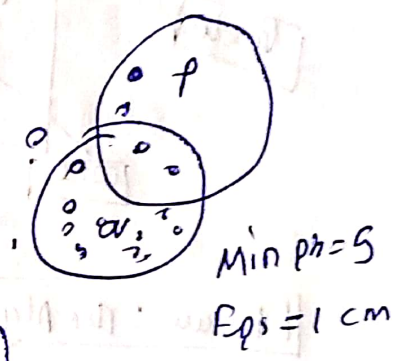 p
Min pts=5
Eps = 1 cm